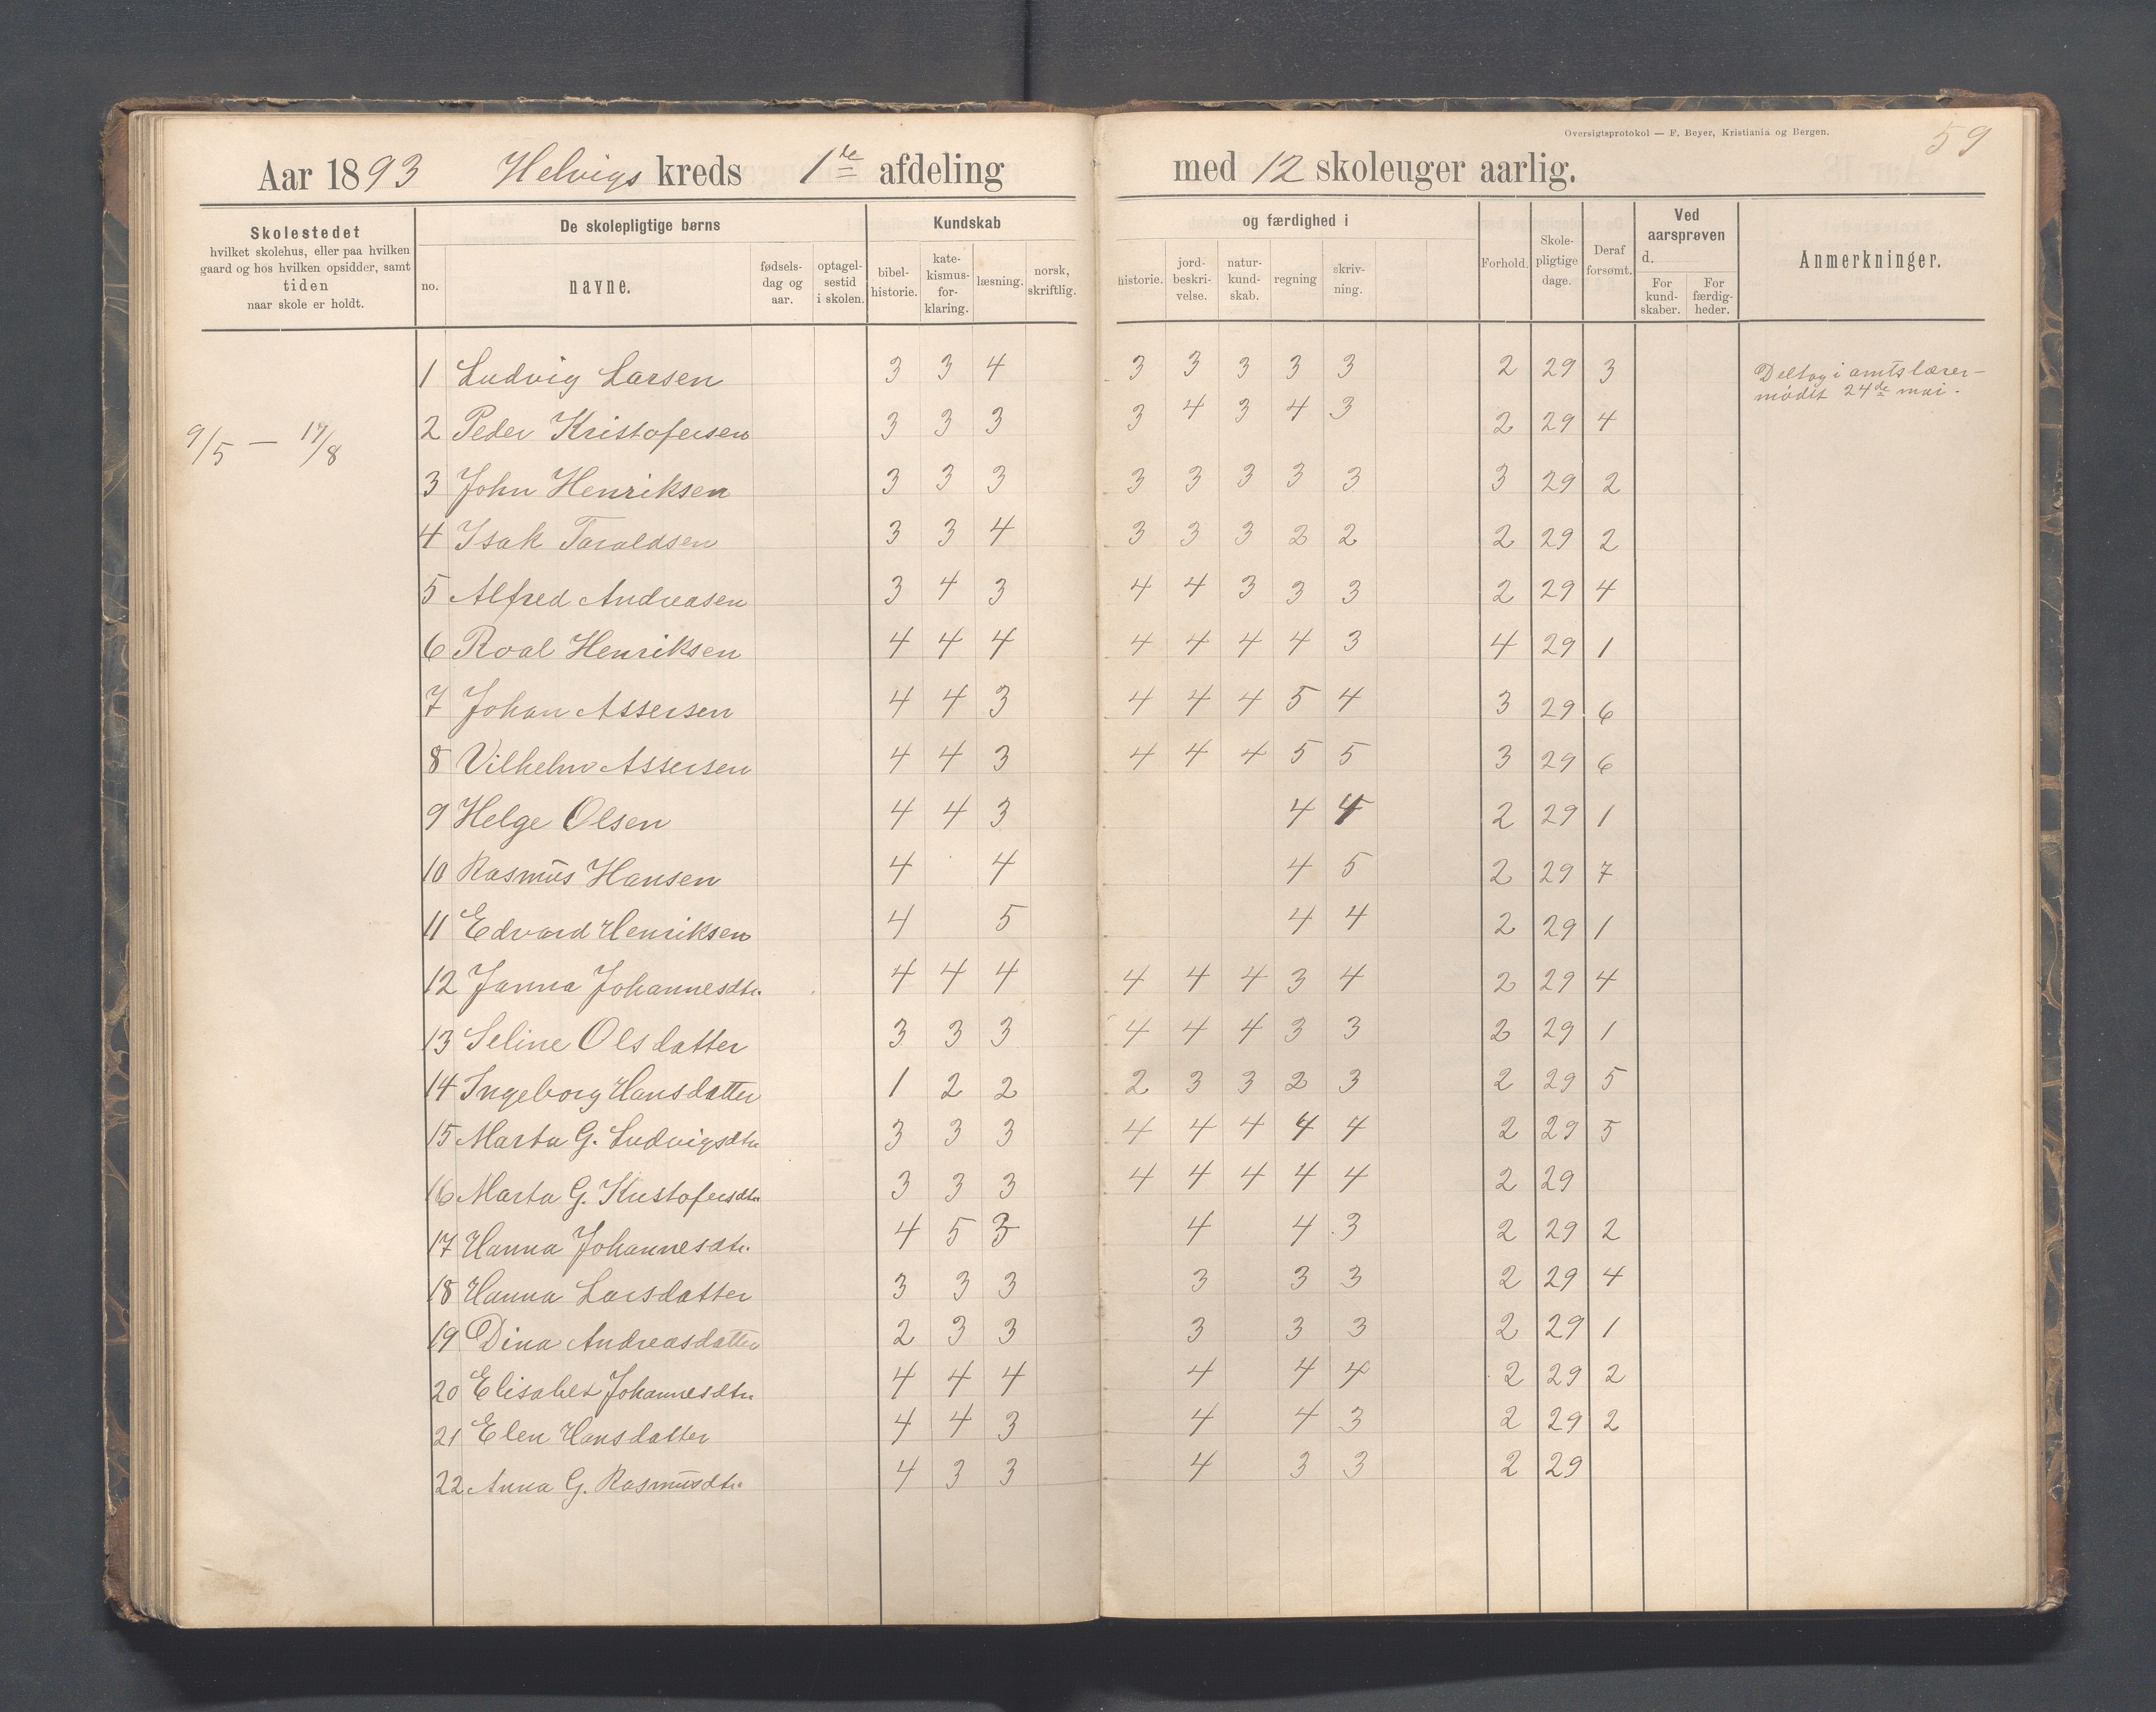 Oversigtsprotokol — F. Beyer, Kristiania og Bergen.
59
Aar 1893 Helvigs kreds 1ste afdeling med 12 skoleuger aarlig.
Skolestedet hvilket skolehus, eller paa hvilken gaard og hos hvilken opsidder, samt tiden naar skole er holdt.
De skolepligtige børns
no. navne. fødsels-dag og aar. optagel-sestid i skolen.
Kundskab og færdighed i
bibel-historie. kate-kismus-for-klaring. læsning. norsk, skriftlig. historie. jord-beskri-velse. natur-kund-skab. regning skriv-ning.
Forhold. Skole-pligtige dage. Deraf forsømt.
Ved aarsprøven d.
For kund-skaber. For færdig-heder.
Anmerkninger.
1 Ludvig Larsen 3 3 4 3 3 3 3 3 2 29 3 Deltog i amtslærer-
mødet 24de mai.
9/5 — 17/8
2 Peder Kristofersen 3 3 3 3 4 3 4 3 2 29 4
3 John Henriksen 3 3 3 3 3 3 3 3 3 29 2
4 Isak Taraldsen 3 3 4 3 3 3 2 2 2 29 2
5 Alfred Andreasen 3 4 3 4 4 3 3 3 2 29 4
6 Roal Henriksen 4 4 4 4 4 4 4 3 4 29 1
7 Johan Assersen 4 4 3 4 4 4 5 4 3 29 6
8 Vilhelm Assersen 4 4 3 4 4 4 5 5 3 29 6
9 Helge Olsen 4 4 3 4 4 2 29 1
10 Rasmus Hansen 4 4 4 5 2 29 7
11 Edvard Henriksen 4 5 4 4 2 29 1
12 Janna Johannesdtr. 4 4 4 4 4 4 3 4 2 29 4
13 Seline Olsdatter 3 3 3 4 4 4 3 3 2 29 1
14 Ingeborg Hansdatter 1 2 2 2 3 3 2 3 2 29 5
15 Marta G. Ludvigsdtr 3 3 3 4 4 4 4 4 2 29 5
16 Marta G. Kristofersdtr 3 3 3 4 4 4 4 4 2 29
17 Hanna Johannesdtr. 4 5 3 4 4 3 2 29 2
18 Hanna Larsdatter 3 3 3 3 3 3 2 29 4
19 Dina Andreasdatter 2 3 3 3 3 3 2 29 1
20 Elisabet Johannesdtr. 4 4 4 4 4 4 2 29 2
21 Elen Hansdatter 4 4 3 4 4 3 2 29 2
22 Anna G. Rasmusdtr. 4 3 3 4 3 3 2 29